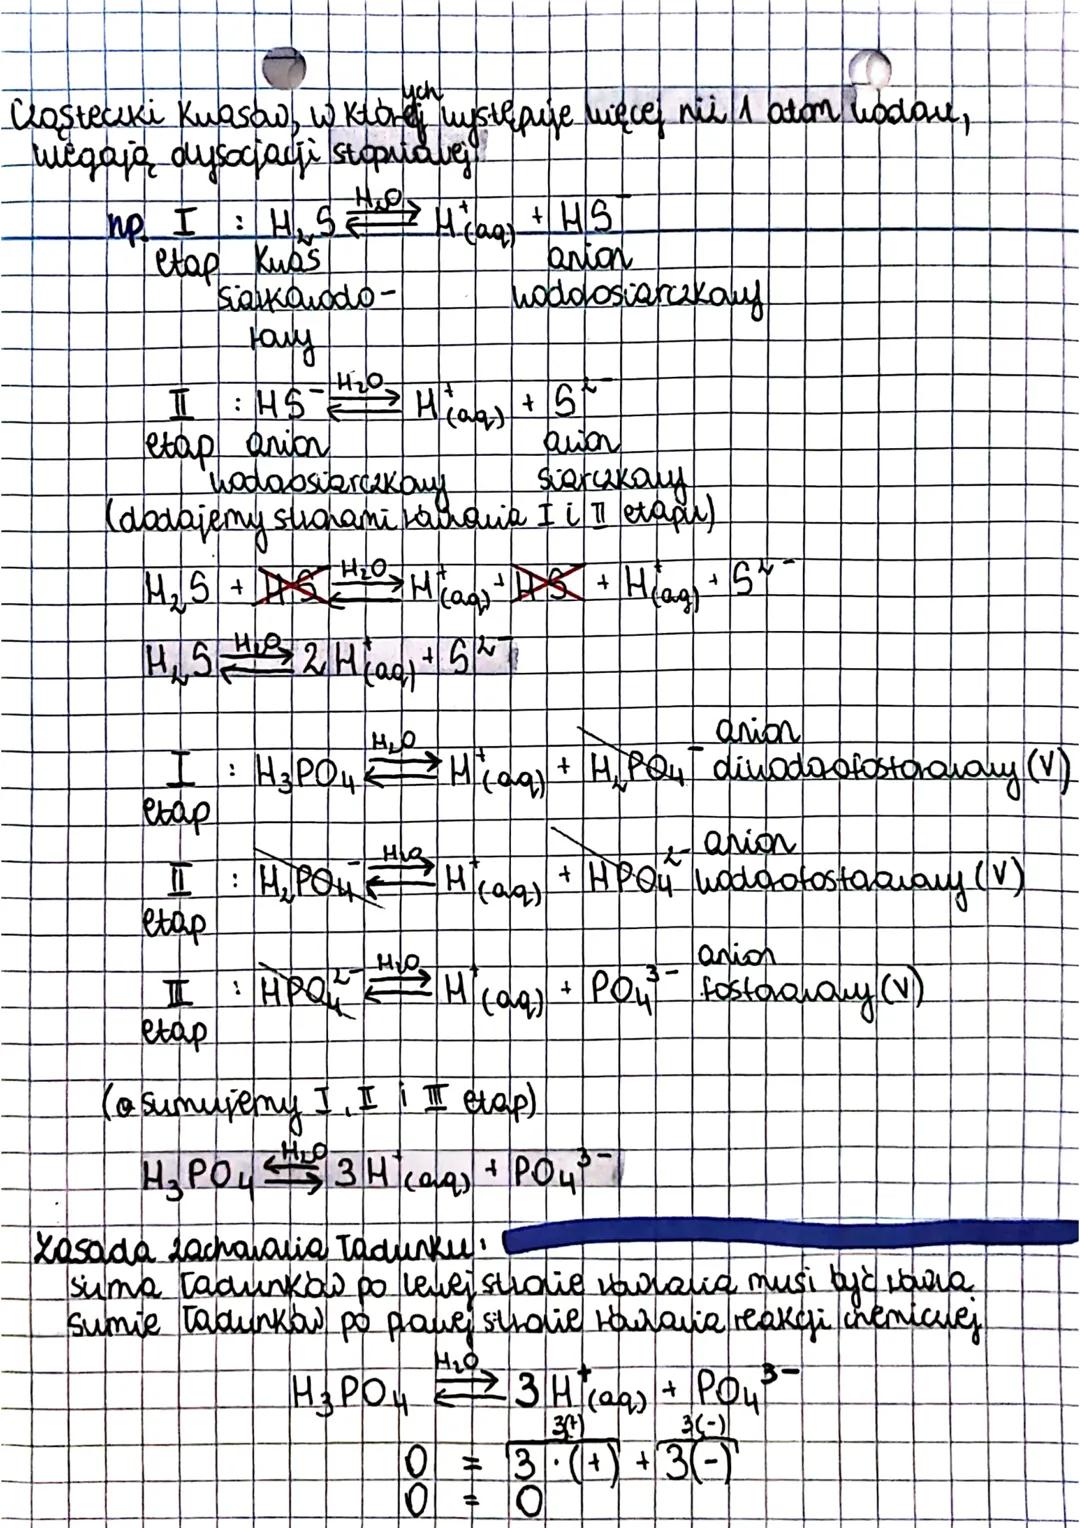 Cząsteczki kwasów, w których występuje więcej niż 1 atom wodoru,
ulegają dysocjacji stopniowej
np. I : H₂S ⇌ H₂O H⁺(aq) + HS⁻
etap kwas anion
siarkowodo- wodorosiarczkowy
rowy
II : HS⁻ ⇌ H₂O H⁺(aq) + S²⁻
etap anion anion
wodorosiarczkowy siarczkowy
(dodajemy stronami równania I i II etapu)
H₂S + HS⁻ ⇌ H₂O H⁺(aq) + HS⁻ + H⁺(aq) + S²⁻
H₂S ⇌ H₂O 2 H⁺(aq) + S²⁻
I : H₃PO₄ ⇌ H₂O H⁺(aq) + H₂PO₄⁻ anion diwodorofosforanowy (V)
etap
II : H₂PO₄⁻ ⇌ H₂O H⁺(aq) + HPO₄²⁻ anion wodorofosforanowy (V)
etap
III : HPO₄²⁻ ⇌ H₂O H⁺(aq) + PO₄³⁻ anion fosforanowy (V)
etap
(sumujemy I, II i III etap)
H₃PO₄ ⇌ H₂O 3 H⁺(aq) + PO₄³⁻
Zasada zachowania ładunku:
suma ładunków po lewej stronie równania musi być równa
sumie ładunków po prawej stronie równania reakcji chemicznej
H₃PO₄ ⇌ H₂O 3 H⁺(aq) + PO₄³⁻
3(+) 3(-)
0 = 3 · (+) + 3(-)
0 = 0